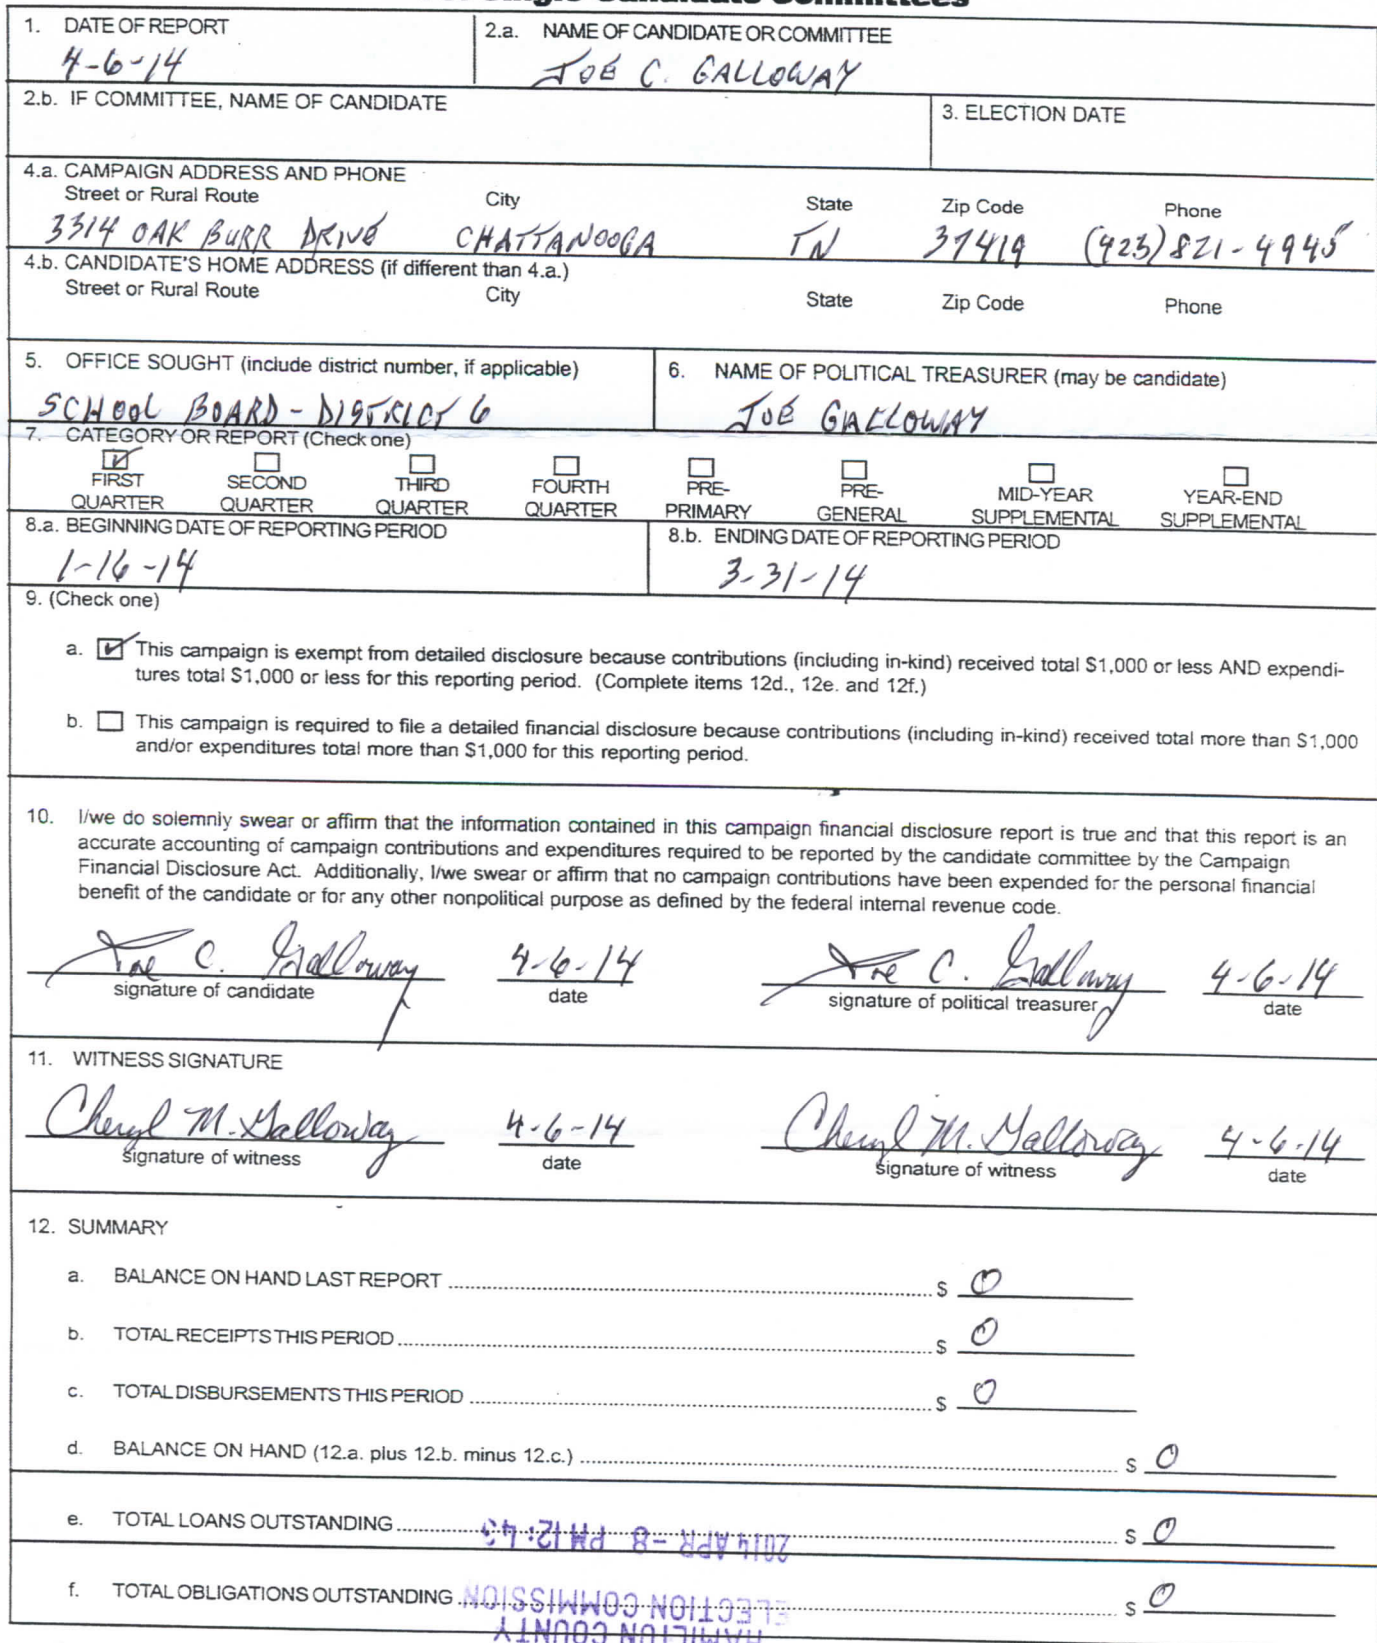 Single Candidate Committees
1. DATE OF REPORT
4-6-14
2.a. NAME OF CANDIDATE OR COMMITTEE
JOE C. GALLOWAY
2.b. IF COMMITTEE, NAME OF CANDIDATE
3. ELECTION DATE
4.a. CAMPAIGN ADDRESS AND PHONE
Street or Rural Route City State Zip Code Phone
3314 OAK BURR DRIVE CHATTANOOGA TN 37419 (423) 821-4945
4.b. CANDIDATE'S HOME ADDRESS (if different than 4.a.)
Street or Rural Route City State Zip Code Phone
5. OFFICE SOUGHT (include district number, if applicable)
SCHOOL BOARD - DISTRICT 6
6. NAME OF POLITICAL TREASURER (may be candidate)
JOE GALLOWAY
7. CATEGORY OR REPORT (Check one)
FIRST QUARTER
SECOND QUARTER
THIRD QUARTER
FOURTH QUARTER
PRE-PRIMARY
PRE-GENERAL
MID-YEAR SUPPLEMENTAL
YEAR-END SUPPLEMENTAL
8.a. BEGINNING DATE OF REPORTING PERIOD
1-16-14
8.b. ENDING DATE OF REPORTING PERIOD
3-31-14
9. (Check one)
a. This campaign is exempt from detailed disclosure because contributions (including in-kind) received total $1,000 or less AND expendi-
tures total $1,000 or less for this reporting period. (Complete items 12d., 12e. and 12f.)
b. This campaign is required to file a detailed financial disclosure because contributions (including in-kind) received total more than $1,000
and/or expenditures total more than $1,000 for this reporting period.
10. I/we do solemnly swear or affirm that the information contained in this campaign financial disclosure report is true and that this report is an
accurate accounting of campaign contributions and expenditures required to be reported by the candidate committee by the Campaign
Financial Disclosure Act. Additionally, I/we swear or affirm that no campaign contributions have been expended for the personal financial
benefit of the candidate or for any other nonpolitical purpose as defined by the federal internal revenue code.
Joe C. Galloway 4-6-14 Joe C. Galloway 4-6-14
signature of candidate date signature of political treasurer date
11. WITNESS SIGNATURE
Cheryl M. Galloway 4-6-14 Cheryl M. Galloway 4-6-14
signature of witness date signature of witness date
12. SUMMARY
a. BALANCE ON HAND LAST REPORT $ 0
b. TOTAL RECEIPTS THIS PERIOD $ 0
c. TOTAL DISBURSEMENTS THIS PERIOD $ 0
d. BALANCE ON HAND (12.a. plus 12.b. minus 12.c.) $ 0
e. TOTAL LOANS OUTSTANDING $ 0
2014 APR -8 PM 12:43
f. TOTAL OBLIGATIONS OUTSTANDING $ 0
ELECTION COMMISSION
HAMILTON COUNTY